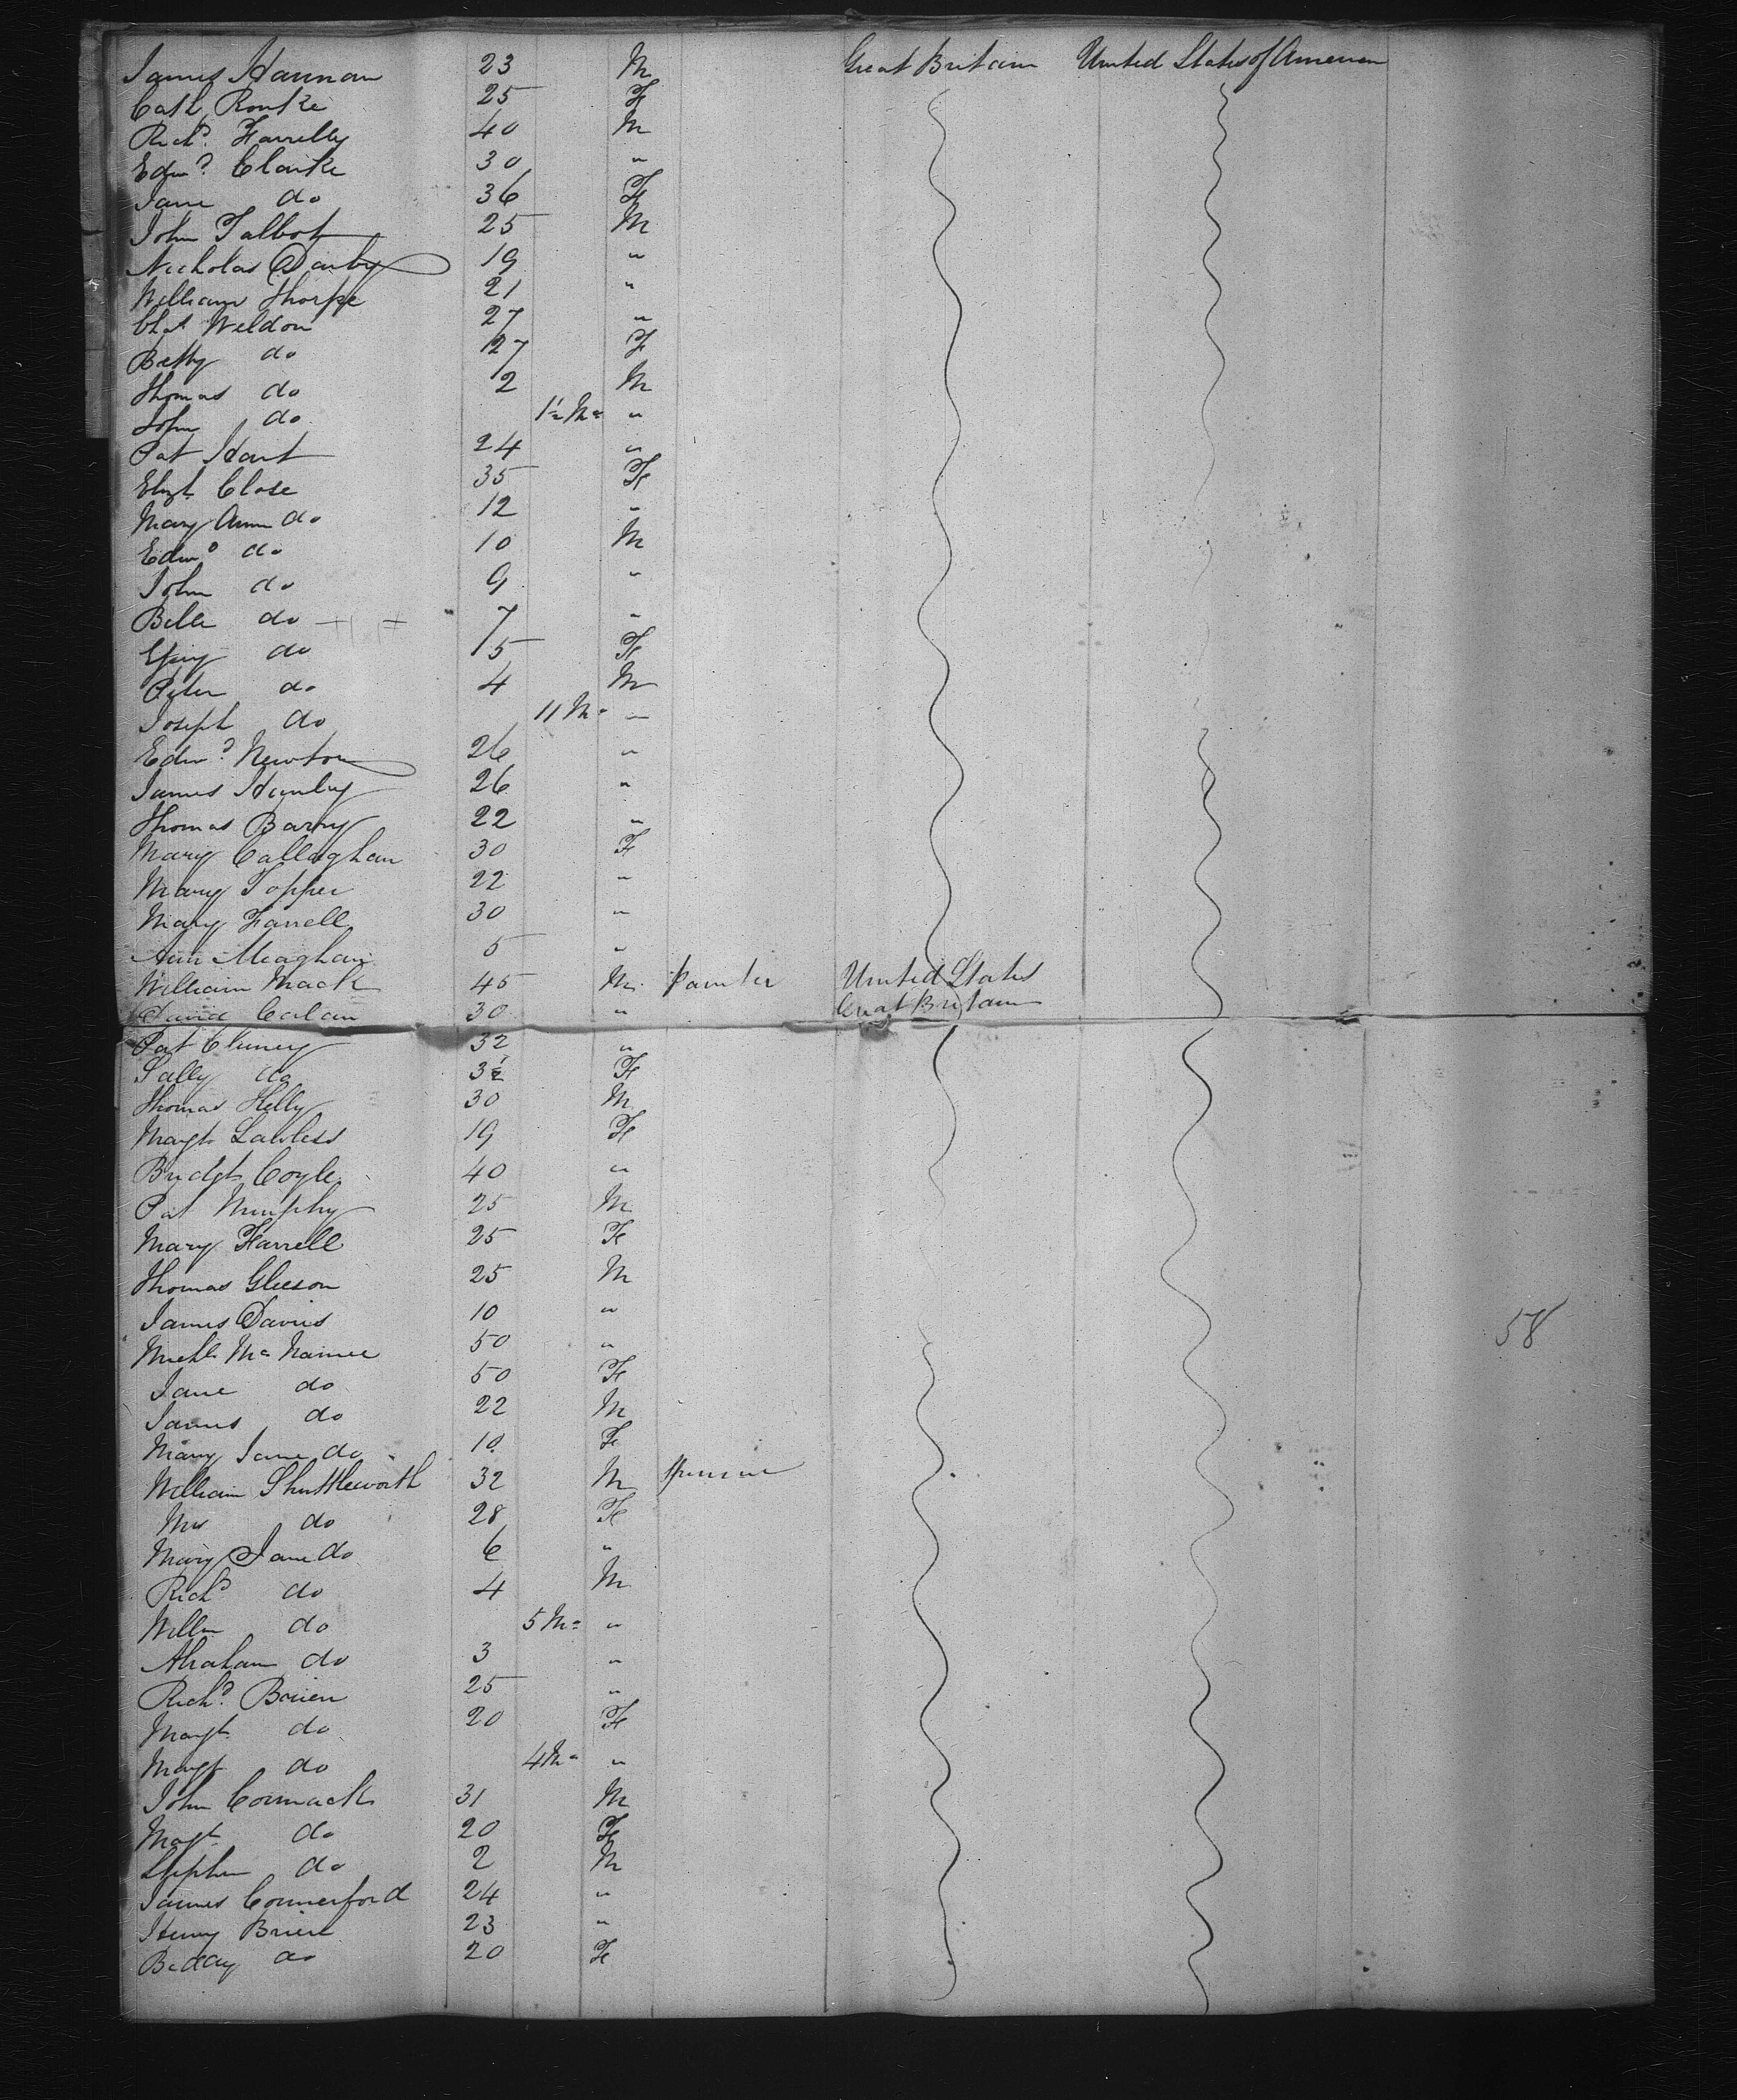 James Hannon 23 M Great Britain United States of America
Cath Rourke 25 F
Richd. Farrelly 40 M
Edwd. Clarke 30 "
Jane do 36 F
John Talbot 25 M
Nicholas Darby 19 "
William Thorpe 21 "
Chas Weldon 27 "
Betty do 27 F
Thomas do 2 M
John do 1½ Ms "
Pat Hart 24 "
Elizt. Close 35 F
Mary Ann do 12 "
Edwd do 10 M
John do 9 "
Bell do 7 "
do 5 F
Peter do 4 M
Joseph do 11 Ms "
Edwd. Newton 26 "
James Hanly 26 "
Thomas Barry 22 "
Mary Callaghan 30 F
Mary Topper 22 "
Mary Farrell 30 "
Ann Meaghan 5 "
William Mack 45 M Painter United States
David Carlan 30 " Great Britain
Pat Cluney 32 "
Sally do 3½ F
Thomas Kelly 30 M
Margt. Lawless 19 F
Bridgt. Coyle 40 "
Pat Murphy 25 M
Mary Farrell 25 F
Thomas Gleeson 25 M
James Davies 10 "
58
Michl. Mc Namee 50 "
Jane do 50 F
James do 22 M
Mary Jane do 10 F
William Shuttleworth 32 M
Mrs do 28 F
Mary Jane do 6 "
Richd do 4 M
Willm do 5 Ms "
Abraham do 3 "
Richd. Brien 25 "
Margt. do 20 F
Margt do 4 Ms "
John Cormack 31 M
Magt. do 20 F
Stephen do 2 M
James Commerford 24 "
Henry Brien 23 "
Baday do 20 F